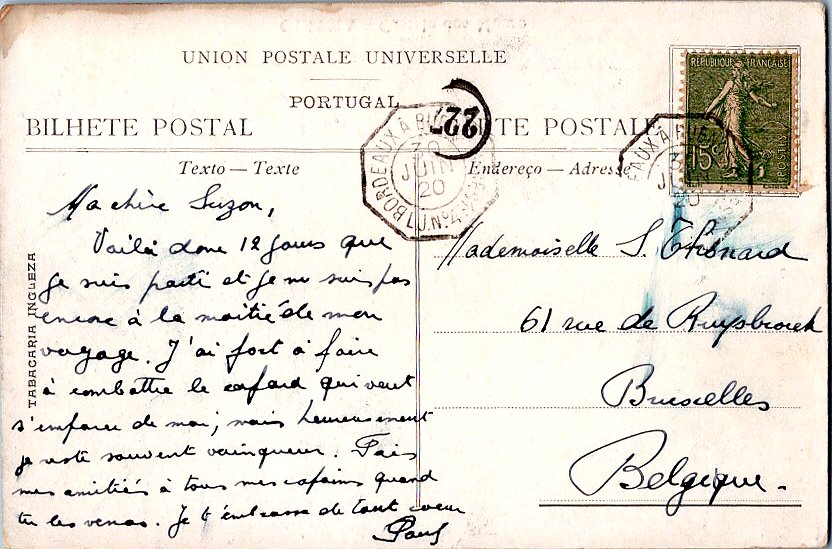 UNION POSTALE UNIVERSELLE
PORTUGAL
BILHETE POSTAL
CARTE POSTALE
Texto — Texte
Endereço — Adresse
TABACARIA INGLEZA
RÉPUBLIQUE FRANÇAISE
15
POSTES
BORDEAUX À BUE
30
JUIN
20
L.J.N°4
22
EAUX À BUE
20
Ma chère Suzon,
Voilà donc 12 jours que
je suis parti et je ne suis pas
encore à la moitié de mon
voyage. J'ai fort à faire
à combattre le cafard qui veut
s'emparer de moi; mais heureusement
je reste souvent vainqueur. Fais
mes amitiés à tous mes copains quand
tu les verras. Je t'embrasse de tout coeur
Paul
Mademoiselle S. Thonard
61 rue de Ruysbroeck
Bruxelles
Belgique.